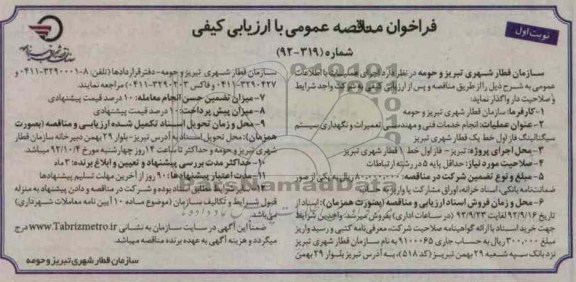 نوبت اول
فراخوان مناقصه عمومی با ارزیابی کیفی
شماره (۳۱۹-۹۲)
سازمان قطار شهری تبریز و حومه در نظر دارد اجرای عملیات با اطلاعات
عمومی به شرح ذیل را از طریق مناقصه و پس از ارزیابی کیفی به شرکت واجد شرایط
و صلاحیت دار واگذار نماید:
۱- کارفرما: سازمان قطار شهری تبریز و حومه
۲- عنوان عملیات: انجام خدمات فنی و مهندسی تعمیرات و نگهداری سیستم
سیگنالینگ فاز اول خط یک قطار شهری تبریز
۳- محل اجرای پروژه: تبریز - فاز اول خط ۱ قطار شهری تبریز
۴- صلاحیت مورد نیاز: حداقل پایه ۵ در رشته ارتباطات
۵- مبلغ و نوع تضمین شرکت در مناقصه: ریال به یکی از صور
ضمانتنامه بانکی، اسناد خزانه، اوراق مشارکت یا واریز
۶- محل و زمان فروش اسناد ارزیابی و مناقصه (بصورت همزمان): اسناد از
تاریخ ۹۲/۹/۱۶ لغایت ۹۲/۹/۲۳ (در ساعات اداری) بفروش میرسد. واجدین شرایط
جهت خرید اسناد با ارائه گواهینامه صلاحیت شرکت، معرفی‌نامه کتبی و رسید واریز
مبلغ ۳۰۰,۰۰۰ ریال به حساب جاری ۹۱۰۰۰۶۵ به نام سازمان قطار شهری تبریز
نزد بانک سپه شعبه ۲۹ بهمن تبریز (کد ۵۱۸)، به آدرس تبریز بلوار ۲۹ بهمن
سازمان قطار شهری تبریز و حومه - دفتر قراردادها (تلفن: ۸-۳۲۹۰۰۰۱-۰۴۱۱ و
۳۲۹۰۴۲۷-۰۴۱۱ و فاکس ۳۲۹۰۲۰۳-۰۴۱۱) مراجعه نمایند.
۷- میزان تضمین حسن انجام معامله: ۱۰ درصد قیمت پیشنهادی
۸- میزان پیش پرداخت: ۱۰ درصد قیمت پیشنهادی
۹- محل و زمان تحویل اسناد تکمیل شده ارزیابی و مناقصه (بصورت
همزمان): محل تحویل اسناد به آدرس تبریز - بلوار ۲۹ بهمن دبیرخانه سازمان قطار
شهری تبریز و حومه و حداکثر تا ساعت ۱۴ روز چهارشنبه مورخ ۹۲/۱۰/۴ میباشد.
۱۰- حداکثر مدت بررسی پیشنهاد و تعیین و ابلاغ برنده: ۳ ماه
۱۱- مدت اعتبار پیشنهادها: ۹۰ روز از آخرین مهلت تسلیم پیشنهادها
شرکت در مناقصه و دادن پیشنهاد به منزله
قبول شرایط و تکالیف سازمان (موضوع ماده ۱۰ آیین نامه معاملات شهرداری)
می‌باشد.
ضمناً این آگهی در سایت سازمان به نشانی www.Tabrizmetro.ir درج
میگردد و هزینه آگهی به عهده برنده مناقصه میباشد.
سازمان قطار شهری تبریز و حومه
ParsNamadData